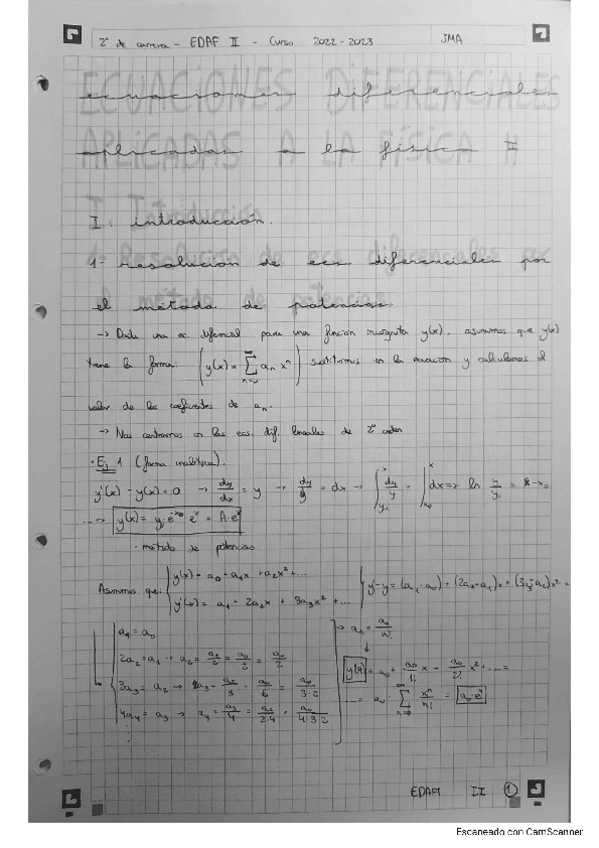 2º de carrera - EDAF II - Curso 2022-2023 JMA
ECUACIONES DIFERENCIALES
ecuaciones diferenciales
APLICADAS A LA FÍSICA II
aplicadas a la física II
I. introducción.
1- resolución de ecs. diferenciales por
el método de potencias.
→ Dada una ec. diferencial para una función incógnita y(x), asumimos que y(x)
tiene la forma: (y(x) = ∑ₙ₌₀^∞ aₙ xⁿ) sustituimos en la ecuación y calculamos el
valor de los coeficientes de aₙ.
→ Nos centramos en las ecs. dif. lineales de 2º orden
· Ej 1 (forma analítica).
y'(x) - y(x) = 0 → dy/dx = y → dy/y = dx → ∫ dy/y = ∫ dx => ln y/y₀ = x - x₀
... → y(x) = y₀ e^-x₀ e^x = A·e^x
· método de potencias
Asumimos que: y(x) = a₀ + a₁x + a₂x² + ...
y'(x) = a₁ + 2a₂x + 3a₃x² + ...
y' - y = (a₁ - a₀) + (2a₂ - a₁)x + (3a₃ - a₂)x² =
a₁ = a₀
2a₂ = a₁ → a₂ = a₁/2 = a₀/2 = a₀/2
3a₃ = a₂ → a₃ = a₂/3 = a₀/6 = a₀/3·2
4a₄ = a₃ → a₄ = a₃/4 = a₀/2·4 = a₀/4·3·2
→ aₙ = a₀/n!
y(x) = a₀ + a₀/1! x + a₀/2! x² + ... =
... = a₀ ∑ₙ₌₀^∞ xⁿ/n! = a₀·e^x
EDAF II 1
Escaneado con CamScanner